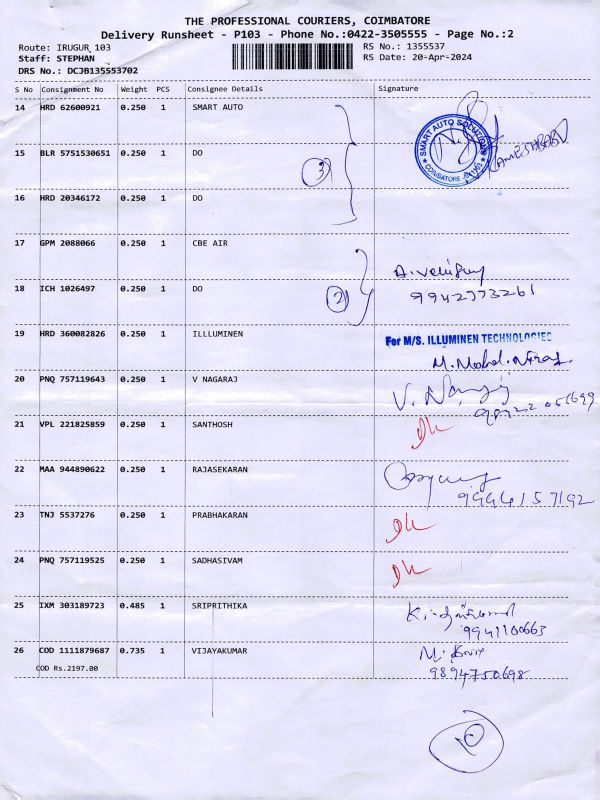 THE PROFESSIONAL COURIERS, COIMBATORE
Delivery Runsheet - P103 - Phone No.:0422-3505555 - Page No.:2
Route: IRUGUR 103
RS No.: 1355537
Staff: STEPHAN
RS Date: 20-Apr-2024
DRS No.: DCJB135553702
S No Consignment No Weight PCS Consignee Details Signature
14 HRD 62600921 0.250 1 SMART AUTO
SMART AUTO SOLUTIONS
COIMBATORE
15 BLR 5751530651 0.250 1 DO
3
16 HRD 20346172 0.250 1 DO
17 GPM 2088066 0.250 1 CBE AIR
18 ICH 1026497 0.250 1 DO
2
9942773261
19 HRD 360082826 0.250 1 ILLLUMINEN
For M/S. ILLUMINEN TECHNOLOGIES
20 PNQ 757119643 0.250 1 V NAGARAJ
21 VPL 221825859 0.250 1 SANTHOSH
22 MAA 944890622 0.250 1 RAJASEKARAN
9994157192
23 TNJ 5537276 0.250 1 PRABHAKARAN
24 PNQ 757119525 0.250 1 SADHASIVAM
25 IXM 303189723 0.485 1 SRIPRITHIKA
9941100663
26 COD 1111879687 0.735 1 VIJAYAKUMAR
COD Rs.2197.00
9894750698
10